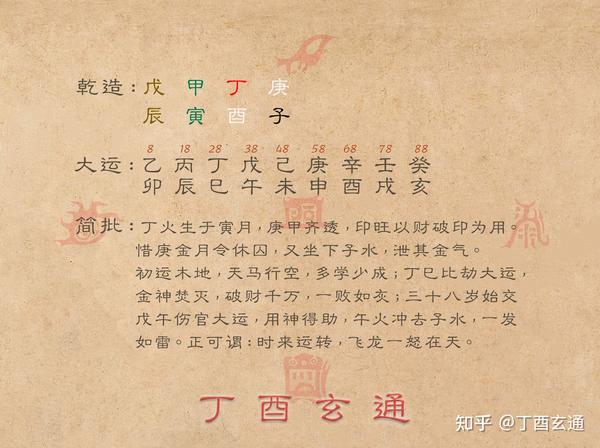 乾造：戊 甲 丁 庚
辰 寅 酉 子
8 18 28 38 48 58 68 78 88
大运：乙 丙 丁 戊 己 庚 辛 壬 癸
卯 辰 巳 午 未 申 酉 戌 亥
简批：丁火生于寅月，庚甲齐透，印旺以财破印为用。
惜庚金月令休囚，又坐下子水，泄其金气。
初运木地，天马行空，多学少成；丁巳比劫大运，
金神焚灭，破财千万，一败如灰；三十八岁始交
戊午伤官大运，用神得助，午火冲去子水，一发
如雷。正可谓：时来运转，飞龙一怒在天。
丁酉玄通
知乎 @丁酉玄通